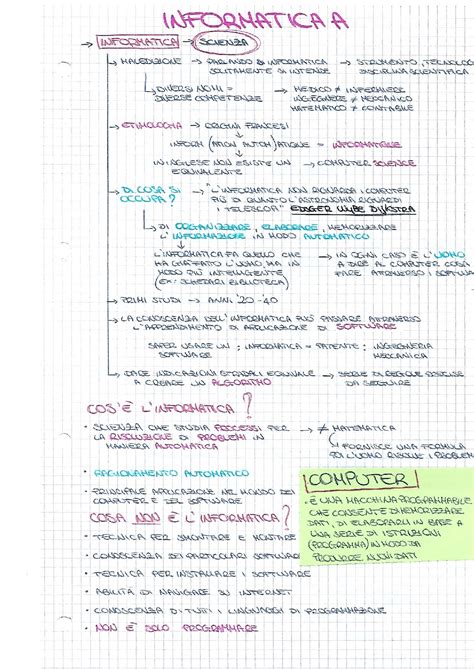 INFORMATICA A
→ INFORMATICA → SCIENZA
→ MALEDIZIONE → PARLANDO DI INFORMATICA → STRUMENTO, TECNOLOGI
SOLITAMENTE SI INTENDE DISCIPLINA SCIENTIFICA
↳ DIVERSI NOMI = → MEDICO ≠ INFERMIERE
DIVERSE COMPETENZE INGEGNERE ≠ MECCANICO
MATEMATICO ≠ CONTABILE
→ ETIMOLOGIA → ORIGINI FRANCESI
INFORM (ATION AUTOM) ATIQUE = INFORMATIQUE
IN INGLESE NON ESISTE UN → COMPUTER SCIENCE
EQUIVALENTE
→ DI COSA SI → "L'INFORMATICA NON RIGUARDA I COMPUTER
OCCUPA? PIÙ DI QUANTO L'ASTRONOMIA RIGUARDI
I TELESCOPI" EDSGER WYBE DIJKSTRA
↳ DI ORGANIZZARE, ELABORARE, MEMORIZZARE
L'INFORMAZIONE IN MODO AUTOMATICO
L'INFORMATICA FA QUELLO CHE → IN OGNI CASO È L'UOMO
HA GIÀ FATTO L'UOMO, MA IN A DIRE AL COMPUTER COSA
MODO PIÙ INTELLIGENTE FARE ATTRAVERSO I SOFTWA
(ES: SCHEDARI BIBLIOTECA)
→ PRIMI STUDI → ANNI '20-40
→ LA CONOSCENZA DELL'INFORMATICA PUÒ PASSARE ATTRAVERSO
L'APPRENDIMENTO DI APPLICAZIONE DI SOFTWARE
SAPER USARE UN : INFORMATICA = PATENTE : INGEGNERIA
SOFTWARE MECCANICA
→ DARE INDICAZIONI STRADALI EQUIVALE → SERIE DI REGOLE PRECISE
A CREARE UN ALGORITMO DA SEGUIRE
COS'È L'INFORMATICA?
• SCIENZA CHE STUDIA PROCESSI PER → ≠ MATEMATICA
LA RISOLUZIONE DI PROBLEMI IN ↳ FORNISCE UNA FORMULA
MANIERA AUTOMATICA POI L'UOMO RISOLVE I PROBLEM
• RAGIONAMENTO AUTOMATICO
• PRINCIPALE APPLICAZIONE NEL MONDO DEI
COMPUTER E DEL SOFTWARE
COSA NON È L'INFORMATICA?
• TECNICA PER SMONTARE E MONTARE
• CONOSCENZA DEI PARTICOLARI SOFTWARE
• TECNICA PER INSTALLARE I SOFTWARE
• ABILITÀ DI NAVIGARE SU INTERNET
• CONOSCENZA DI TUTTI I LINGUAGGI DI PROGRAMMAZIONE
• NON È SOLO PROGRAMMARE
COMPUTER
• È UNA MACCHINA PROGRAMMABILE
CHE CONSENTE DI MEMORIZZARE
DATI, DI ELABORARLI IN BASE A
UNA SERIE DI ISTRUZIONI
(PROGRAMMA) IN MODO DA
PRODURRE NUOVI DATI